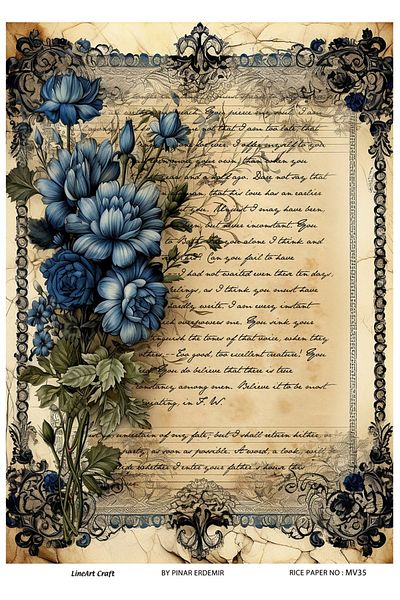 reach. You pierce my soul. I am
not that I am too late, that
for ever. I offer myself to you
more your own, than when you
years and a half ago. Dare not say that
man, that his love has an earlier
you. Unjust I may have been,
been, but never inconstant. You
to Bath. you alone I think and
Can you fail to have
I had not waited even these ten days,
as I think you must have
write. I am every instant
overpowers me. You sink your
the tones of that voice, when they
others.--Too good, too excellent creature! You
You do believe that there is true
constancy among men. Believe it to be most
in F. W.
uncertain of my fate; but I shall return hither, or
party, as soon as possible. A word, a look, will
whether I enter your father's house this
LineArt Craft BY PINAR ERDEMIR RICE PAPER NO : MV35